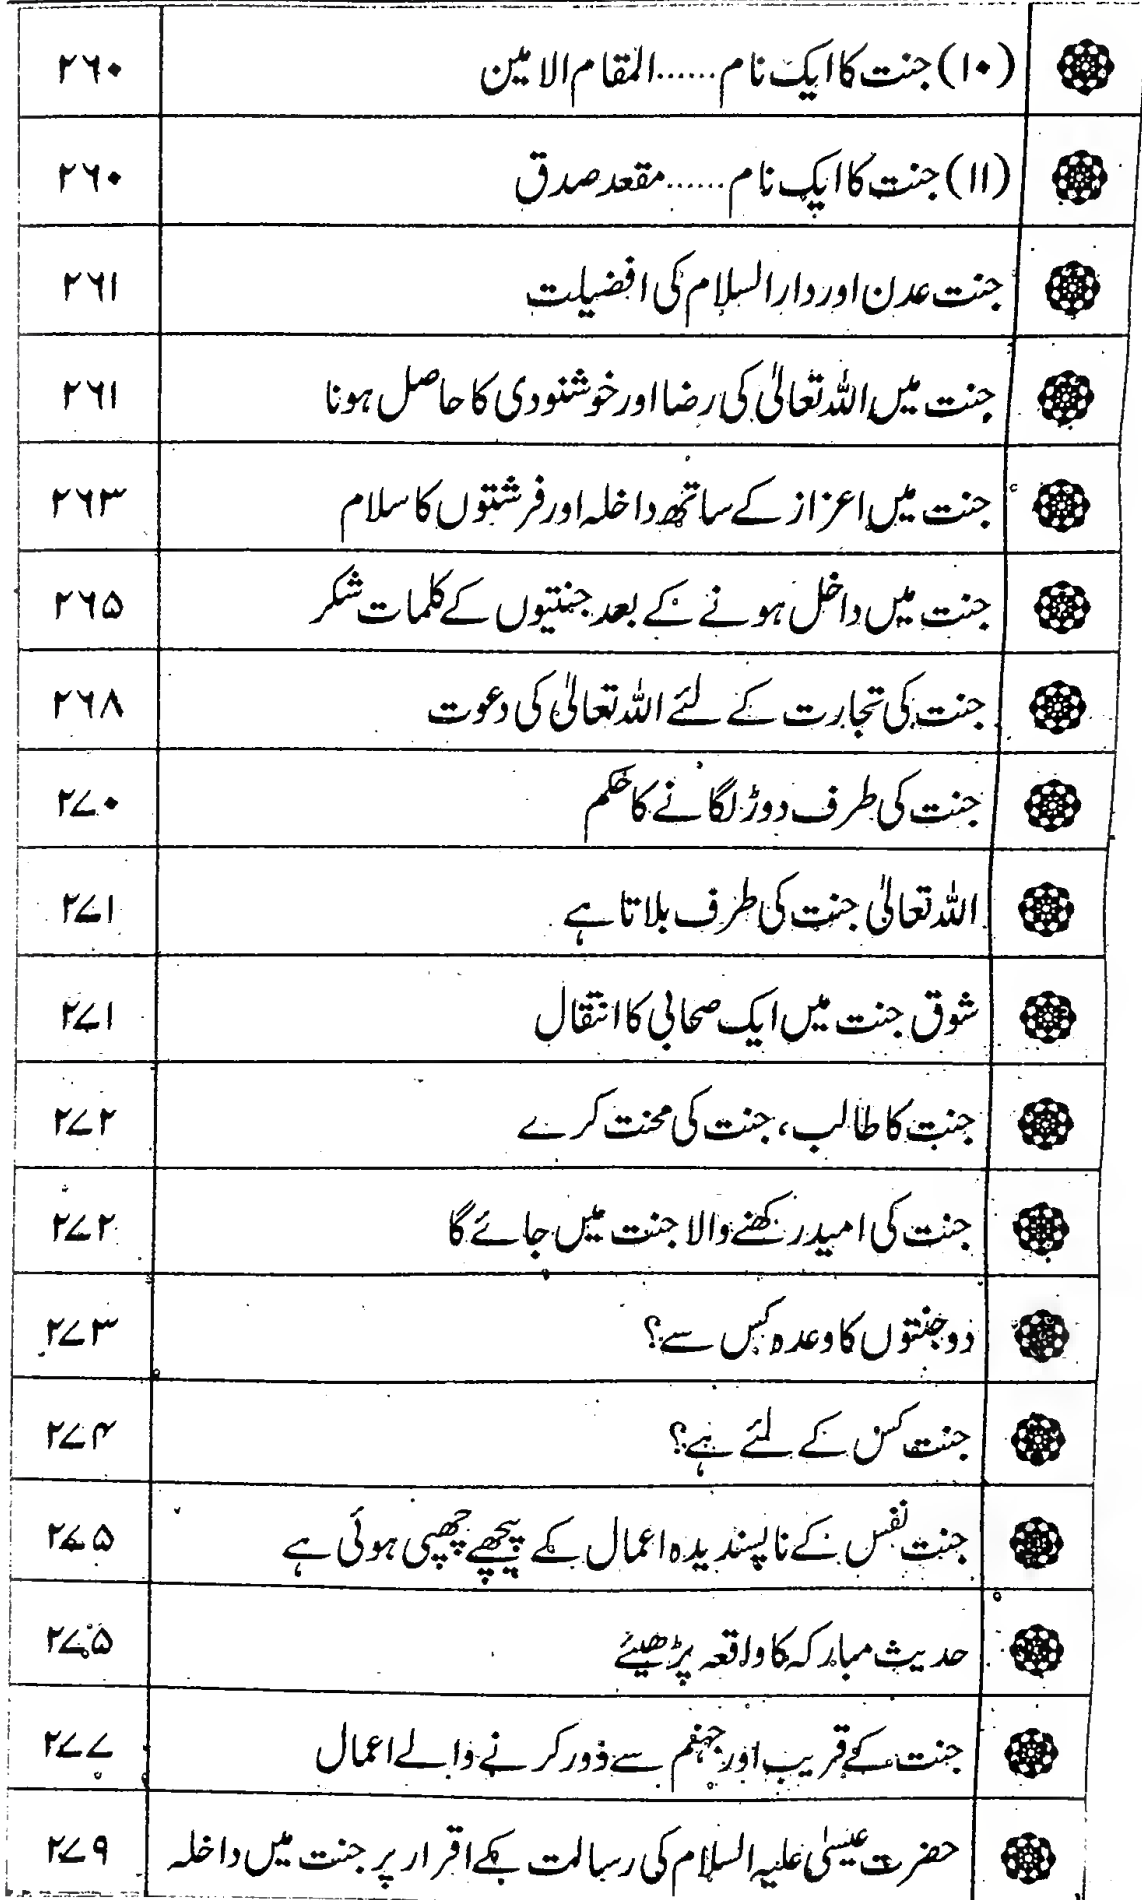 (۱۰) جنت کا ایک نام......المقام الامین ۲۶۰
(۱۱) جنت کا ایک نام......مقعد صدق ۲۶۰
جنت عدن اور دارالسلام کی افضیلت ۲۶۱
جنت میں اللہ تعالیٰ کی رضا اور خوشنودی کا حاصل ہونا ۲۶۱
جنت میں اعزاز کے ساتھ داخلہ اور فرشتوں کا سلام ۲۶۳
جنت میں داخل ہونے کے بعد جنتیوں کے کلمات شکر ۲۶۵
جنت کی تجارت کے لئے اللہ تعالیٰ کی دعوت ۲۶۸
جنت کی طرف دوڑ لگانے کا حکم ۲۷۰
اللہ تعالیٰ جنت کی طرف بلاتا ہے ۲۷۱
شوق جنت میں ایک صحابی کا انتقال ۲۷۱
جنت کا طالب، جنت کی محنت کرے ۲۷۲
جنت کی امید رکھنے والا جنت میں جائے گا ۲۷۲
دو جنتوں کا وعدہ کس سے؟ ۲۷۳
جنت کس کے لئے ہے؟ ۲۷۴
جنت نفس کے ناپسندیدہ اعمال کے پیچھے چھپی ہوئی ہے ۲۷۵
حدیث مبارکہ کا واقعہ پڑھیئے ۲۷۵
جنت کے قریب اور جہنم سے دور کرنے والے اعمال ۲۷۷
حضرت عیسیٰ علیہ السلام کی رسالت کے اقرار پر جنت میں داخلہ ۲۷۹